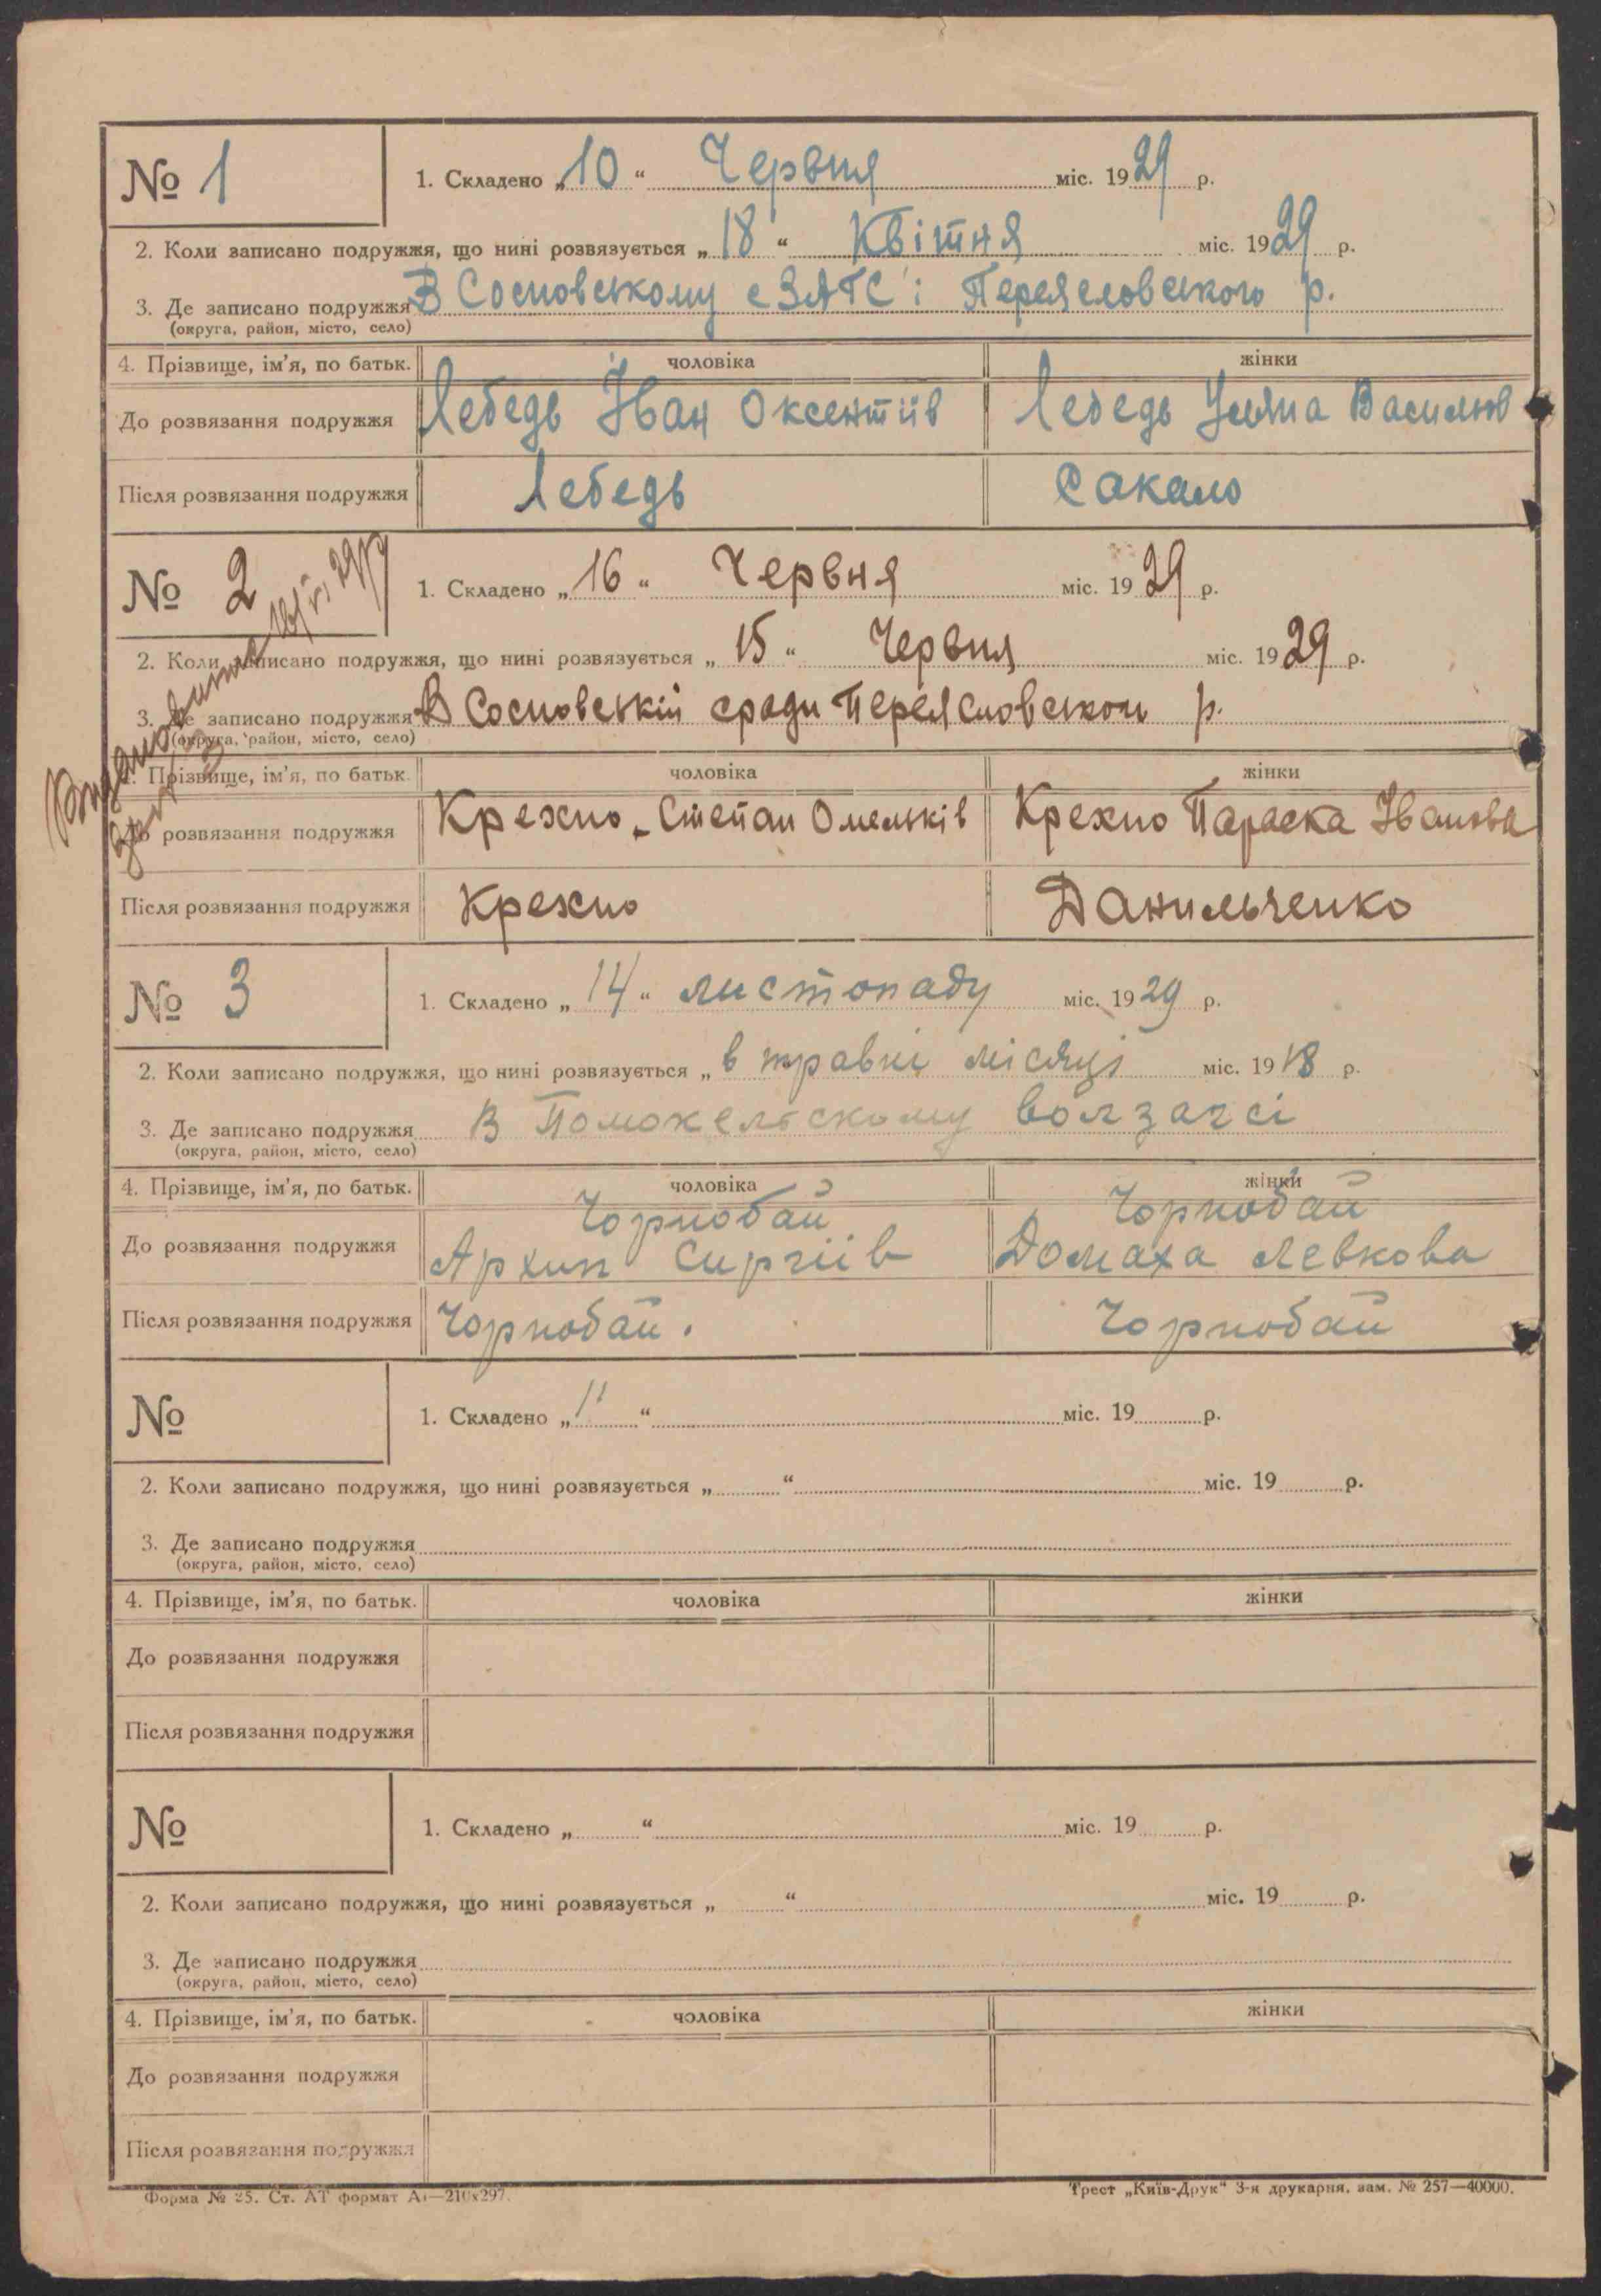 № 1
1. Складено „10“ Червня міс. 1929 р.
2. Коли записано подружжя, що нині розвязується „18“ Квітня міс. 1929 р.
3. Де записано подружжя В Сосновському с ЗАГС'і Переясловського р.
(округа, район, місто, село)
4. Прізвище, ім'я, по батьк. чоловіка жінки
До розвязання подружжя Лебедь Іван Оксентіїв Лебедь Уляна Василюв
Після розвязання подружжя Лебедь Сакало
№ 2
1. Складено „16“ Червня міс. 1929 р.
2. Коли записано подружжя, що нині розвязується „15“ Червня міс. 1929 р.
3. Де записано подружжя В Сосновській сради Переясловського р.
(округа, район, місто, село)
4. Прізвище, ім'я, по батьк. чоловіка жінки
До розвязання подружжя Крехно Степан Омельків Крехно Параска Іванова
Після розвязання подружжя Крехно Данильченко
№ 3
1. Складено „14“ листопаду міс. 1929 р.
2. Коли записано подружжя, що нині розвязується „в травні місяці міс. 1918 р.
3. Де записано подружжя В волзагсі
(округа, район, місто, село)
4. Прізвище, ім'я, по батьк. чоловіка жінки
Чорнобай Чорнобай
До розвязання подружжя Архип Сиргіїв Домаха Левкова
Після розвязання подружжя Чорнобай. Чорнобай
№
1. Складено „11“ міс. 19 р.
2. Коли записано подружжя, що нині розвязується „ “ міс. 19 р.
3. Де записано подружжя
(округа, район, місто, село)
4. Прізвище, ім'я, по батьк. чоловіка жінки
До розвязання подружжя
Після розвязання подружжя
№
1. Складено „ “ міс. 19 р.
2. Коли записано подружжя, що нині розвязується „ “ міс. 19 р.
3. Де записано подружжя
(округа, район, місто, село)
4. Прізвище, ім'я, по батьк. чоловіка жінки
До розвязання подружжя
Після розвязання подружжя
Форма № 25. Ст. АТ формат А4—210х297.
Трест „Київ-Друк“ 3-я друкарня, зам. № 257—40000.